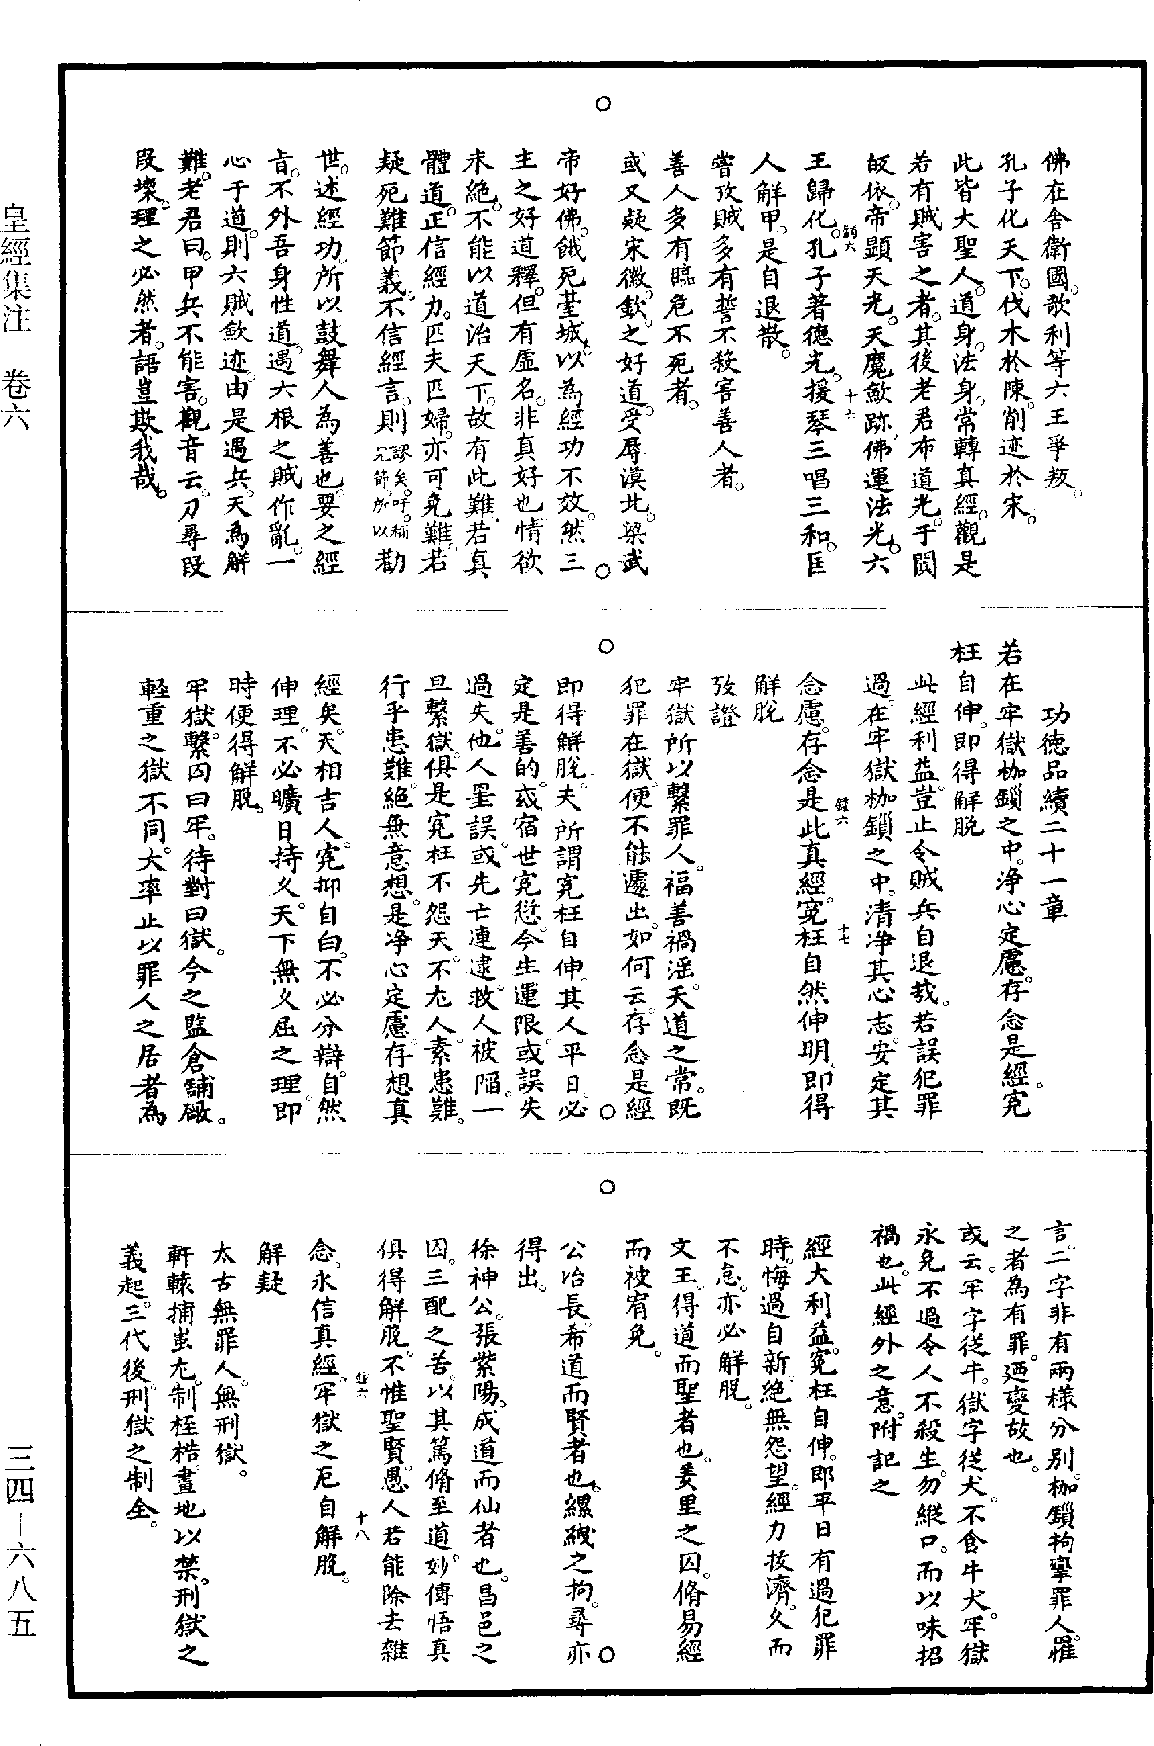 佛在舍衛國。歌利等六王爭叛。
孔子化天下。伐木於陳。削迹於宋。
此皆大聖人。道身。法身。常轉真經。觀是
若有賊害之者。其後老君布道光。于闐
皈依。帝顯天光。天魔斂跡。佛運法光。六
王歸化。孔子著德光。援琴三唱三和。匡
人解甲。是自退散。
嘗攷賊多有誓不殺害善人者。
善人多有臨危不死者。
或又疑宋徽欽。之好道。受辱漠北。梁武
帝好佛。餓死臺城。以為經功不效。然三
主之好道釋。但有虛名。非真好也。情欲
未絕。不能以道治天下。故有此難。若真
體道。正信經力。匹夫匹婦。亦可免難。若
疑死難節義。不信經言。則謬矣。呼。稱元節。所以勸
世。述經功。所以鼓舞人為善也。要之經
旨。不外吾身性道。遇六根之賊作亂。一
心于道。則六賊斂迹。由是遇兵。天為解
難。老君曰。甲兵不能害。觀音云。刀尋段
段壞。理之必然者。語豈欺我哉。
功德品續二十一章
若在牢獄枷鎖之中。淨心定慮。存念是經。冤
枉自伸。即得解脫
此經利益。豈止令賊兵自退哉。若誤犯罪
過。在牢獄枷鎖之中。清淨其心志。安定其
念慮。存念是此真經。冤枉自然伸明。即得
解脫
攷證
牢獄所以繫罪人。福善禍淫。天道之常。既
犯罪在獄。便不能遽出。如何云。存念是經
即得解脫。夫所謂冤枉自伸。其人平日。必
定是善的。或宿世冤愆。今生運限。或誤失
過失。他人罣誤。或先亡連逮。救人被陷。一
旦繫獄。俱是冤枉。不怨天。不尤人。素患難。
行乎患難。絕無意想。是淨心定慮。存想真
經矣。天相吉人。冤抑自白。不必分辯。自然
伸理。不必曠日持久。天下無久屈之理。即
時便得解脫。
牢獄。繫囚曰牢。待對曰獄。今之監倉舖廠。
輕重之獄不同。大率止以罪人之居者為
言。二字非有兩樣分別。枷鎖拘攣罪人。罹
之者為有罪。迺變故也。
或云。牢字從牛。獄字從犬。不食牛犬。牢獄
永免。不過令人不殺生。勿縱口。而以味招
禍也。此經外之意。附記之
經大利益。冤枉自伸。即平日有過犯罪
時。悔過自新。絕無怨望。經力拔濟。久而
不怠。亦必解脫。
文王。得道而聖者也。羑里之囚。脩易經
而被宥免。
公冶長。希道而賢者也。縲絏之拘。尋亦
得出。
徐神公。張紫陽。成道而仙者也。昌邑之
囚。三配之苦。以其篤脩至道。妙傳悟真
俱得解脫。不惟聖賢。愚人若能除去雜
念。永信真經。牢獄之厄自解脫。
解疑
太古無罪人。無刑獄。
軒轅捕蚩尤。制桎梏。畫地以禁。刑獄之
義起。三代後。刑獄之制全。
皇經集注　卷六
三四—六八五